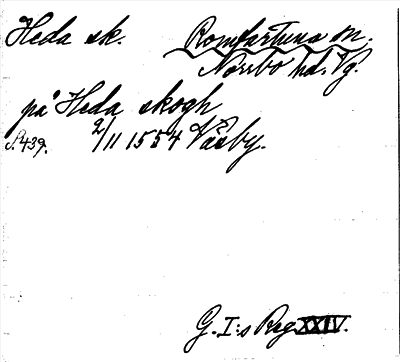 Heda sk. Romfartuna sn.
Norrbo hd. Vg.
på Heda skogh
S. 439. 2/11 1554 Väsby.
G. I:s Reg XXIV.